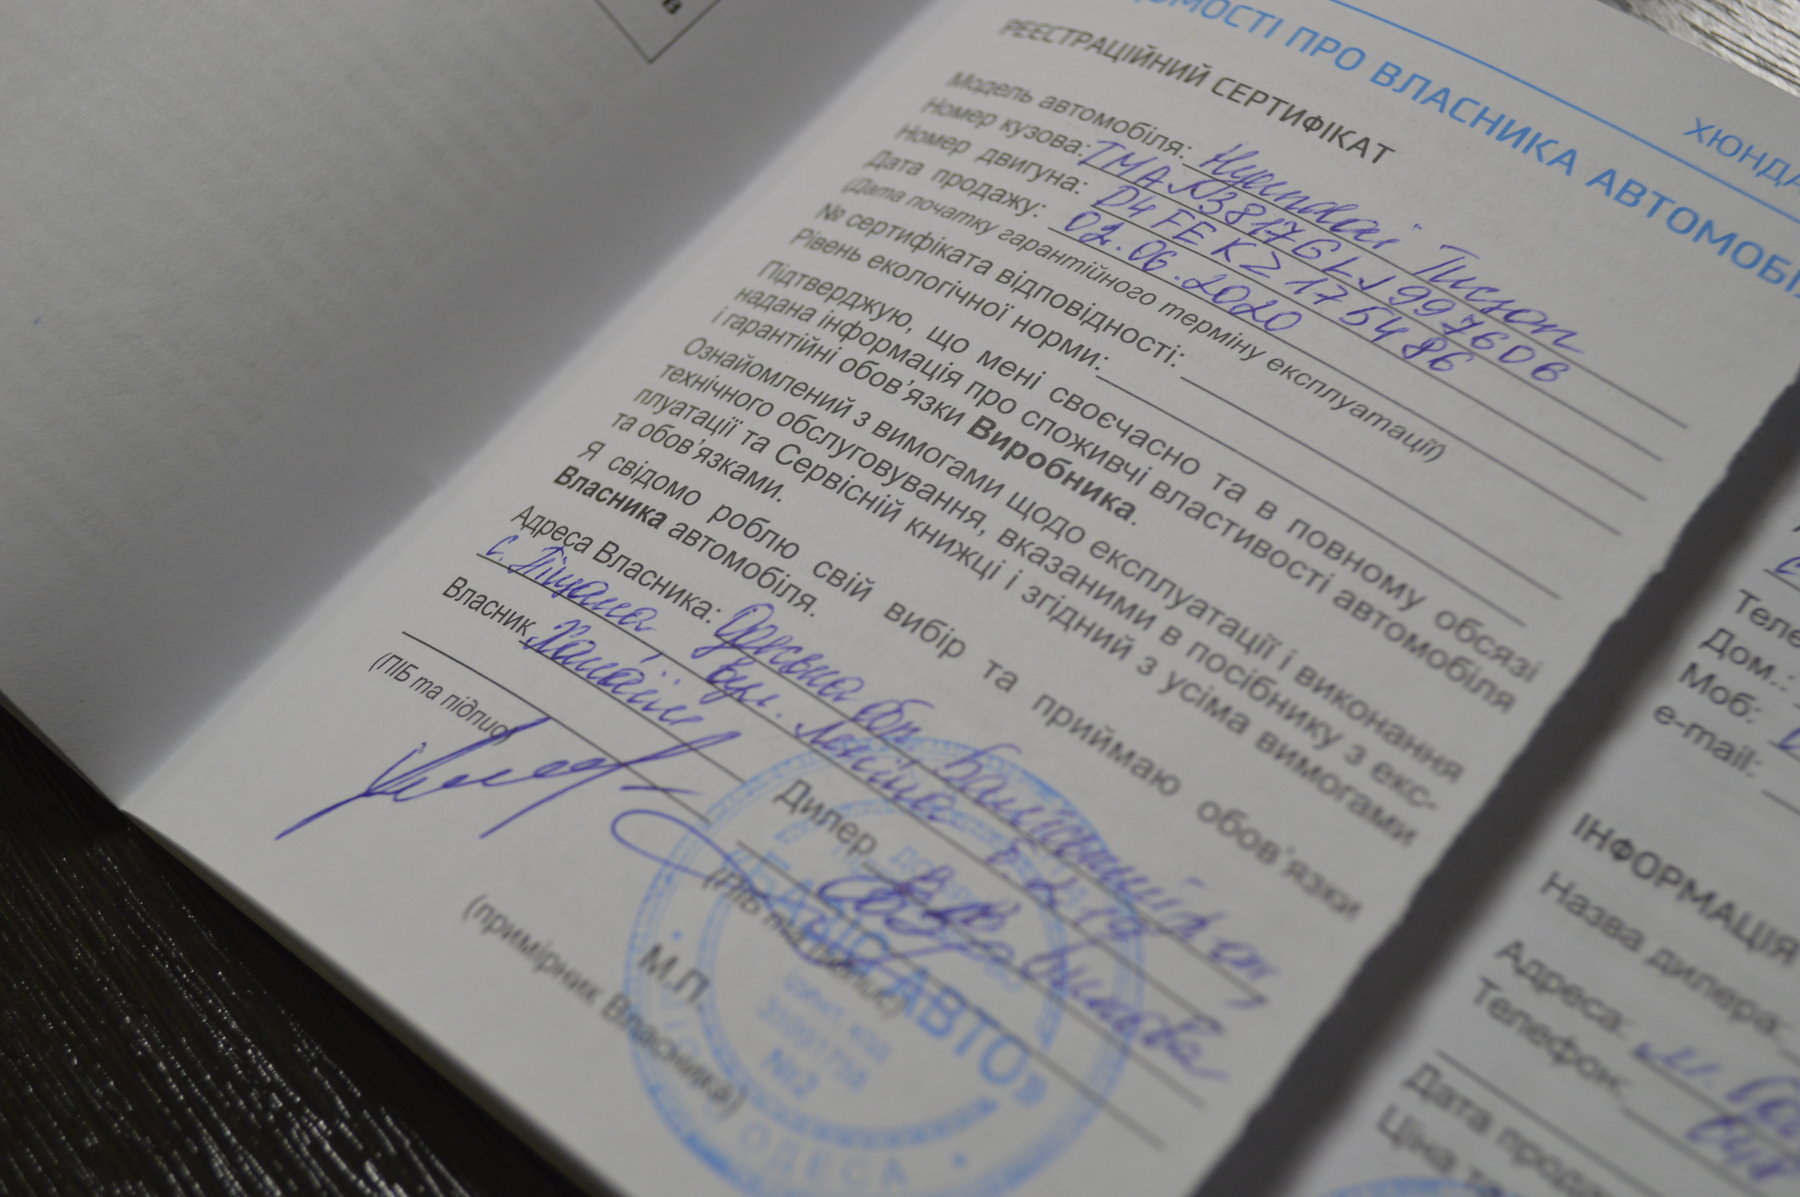 ОМОСТІ ПРО ВЛАСНИКА АВТОМОБІ
ХЮНДА
РЕЄСТРАЦІЙНИЙ СЕРТИФІКАТ
Модель автомобіля: Hyundai Tucson
Номер кузова: TMAN38176LJ997606
Номер двигуна: D4FEK2175486
Дата продажу: 02.06.2020
(Дата початку гарантійного терміну експлуатації)
№ сертифіката відповідності:
Рівень екологічної норми:
Підтверджую, що мені своєчасно та в повному обсязі
надана інформація про споживчі властивості автомобіля
і гарантійні обов’язки Виробника.
Ознайомлений з вимогами щодо експлуатації і виконання
технічного обслуговування, вказаними в посібнику з екс-
плуатації та Сервісній книжці і згідний з усіма вимогами
та обов’язками.
Я свідомо роблю свій вибір та приймаю обов’язки
Власника автомобіля.
Адреса Власника: Одеська обл
с. вул.
Власник
(ПІБ та підпис)
Дилер
(ПІБ та підпис)
М.П.
(примірник Власника)
АВТО»
№2
ОДЕСА
Теле
Дом.:
Моб:
e-mail:
ІНФОРМАЦІЯ
Назва дилера:
Адреса: м.
Телефон:
Дата прода
Ціна та